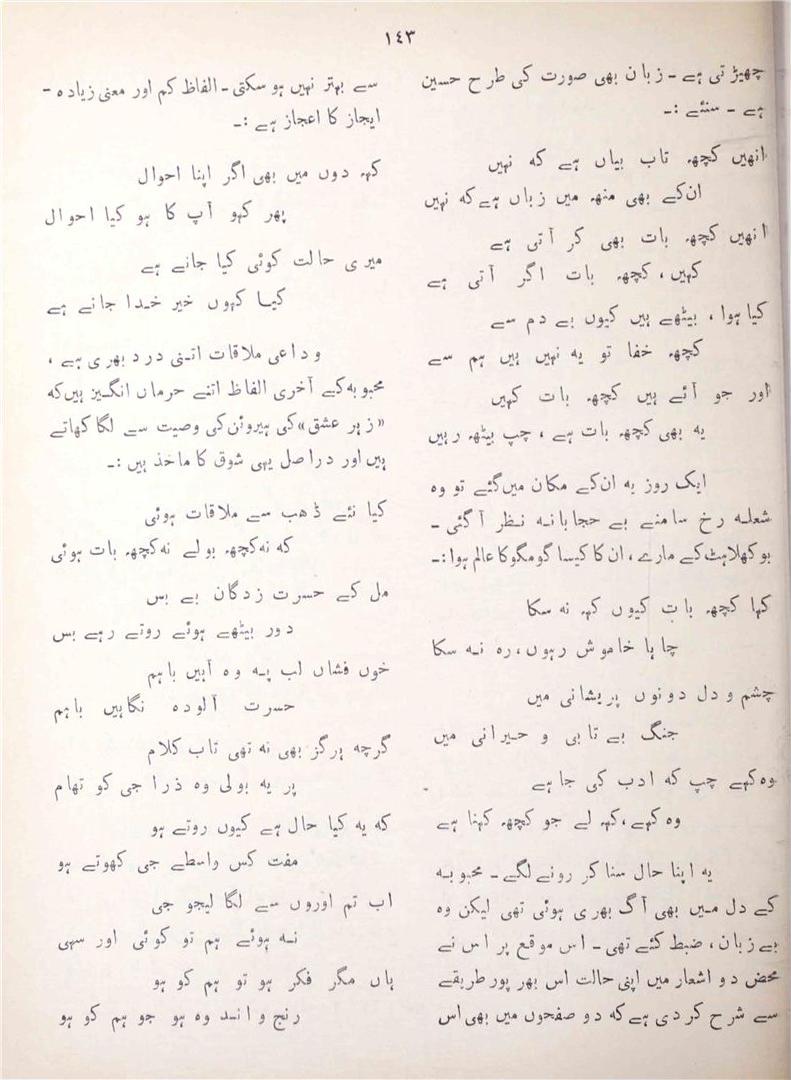 ۱٤۳
چھیڑتی ہے ـ زبان بھی صورت کی طرح حسین
ہے ـ سنئے :ـ
انھیں کچھہ تاب بیاں ہے کہ نہیں
ان کے بھی منھہ میں زباں ہے کہ نہیں
انھیں کچھہ بات بھی کر آتی ہے
کہیں، کچھہ بات اگر آتی ہے
کیا ہوا، بیٹھے ہیں کیوں بے دم سے
کچھہ خفا تو یہ نہیں ہیں ہم سے
اور جو آئے ہیں کچھہ بات کہیں
یہ بھی کچھہ بات ہے، چپ بیٹھہ رہیں
ایک روز یہ ان کے مکان میں گئے تو وہ
شعلہ رخ سامنے بے حجابانہ نظر آ گئی ـ
بوکھلاہٹ کے مارے، ان کا کیسا گومگو کا عالم ہوا :ـ
کہا کچھہ بات کیوں کہہ نہ سکا
چاہا خاموش رہوں، رہ نہ سکا
چشم و دل دونوں پریشانی میں
جنگ بے تابی و حیرانی میں
وہ کہے چپ کہ ادب کی جا ہے
وہ کہے، کہہ لے جو کچھہ کہنا ہے
یہ اپنا حال سنا کر رونے لگے ـ محبوبہ
کے دل میں بھی آگ بھری ہوئی تھی لیکن وہ
بے زبان، ضبط کئے تھی ـ اس موقع پر اس نے
محض دو اشعار میں اپنی حالت اس بھر پور طریقے
سے شرح کر دی ہے کہ دو صفحوں میں بھی اس
سے بہتر نہیں ہو سکتی ـ الفاظ کم اور معنی زیادہ ـ
ایجاز کا اعجاز ہے :ـ
کہہ دوں میں بھی اگر اپنا احوال
پھر کہو آپ کا ہو کیا احوال
میری حالت کوئی کیا جانے ہے
کیا کہوں خیر خدا جانے ہے
وداعی ملاقات اتنی درد بھری ہے،
محبوبہ کے آخری الفاظ اتنے حرماں انگیز ہیں کہ
«زہر عشق» کی ہیروئن کی وصیت سے لگا کھاتے
ہیں اور دراصل یہی شوق کا ماخذ ہیں :ـ
کیا نئے ڈھب سے ملاقات ہوئی
کہ نہ کچھہ بولے نہ کچھہ بات ہوئی
مل کے حسرت زدگان بے بس
دور بیٹھے ہوئے روتے رہے بس
خوں فشاں لب پہ وہ آہیں باہم
حسرت آلودہ نگاہیں باہم
گرچہ ہرگز بھی نہ تھی تاب کلام
پر یہ بولی وہ ذرا جی کو تھام
کہ یہ کیا حال ہے کیوں روتے ہو
مفت کس واسطے جی کھوتے ہو
اب تم اوروں سے لگا لیجو جی
نہ ہوئے ہم تو کوئی اور سہی
ہاں مگر فکر ہو تو ہم کو ہو
رنج و اندہ وہ ہو جو ہم کو ہو